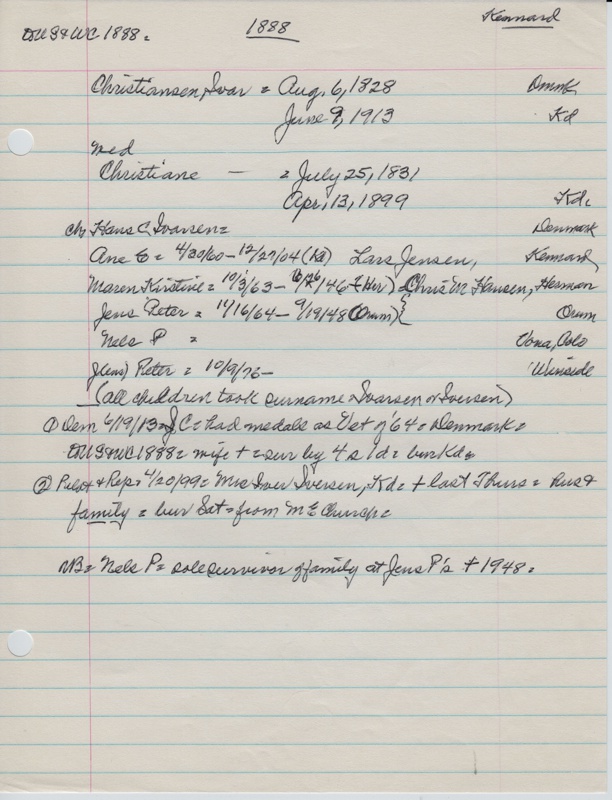 1888 Kennard
to US & WC 1888 =
Christiansen, Ivar = Aug. 6, 1828 Dnmk
June 9, 1913 Kd
med
Christiane — = July 25, 1831
Apr. 13, 1899 Kd =
ch, Hans C. Ivarsen = Denmark
Ane to = 4/30/60 - 12/27/04 (Kd) Lars Jensen, Kennard
Maren Kirstine = 10/3/63 - /46 - (Her) Chris M Hansen, Herman
Jens Peter = 11/16/64 - 9/19/48 (Orum) Orum
Nels P = Vona, Colo
J(ens) Peter = 10/9/76 - Winside
(all children took surname = Ivarsen or Iversen)
① Dem 6/19/13 = J C = had medals as Vet of '64 = Denmark =
to US & WC 1888 = wife + = sur by 4 s 1d = bur Kd =
② Pilot & Rep = 4/20/99 = Mrs Iver Iversen, Kd = + last Thurs = hus &
family = bur Sat = from M E Church =
NB = Nels P = sole survivor of family at Jens P's + 1948 =